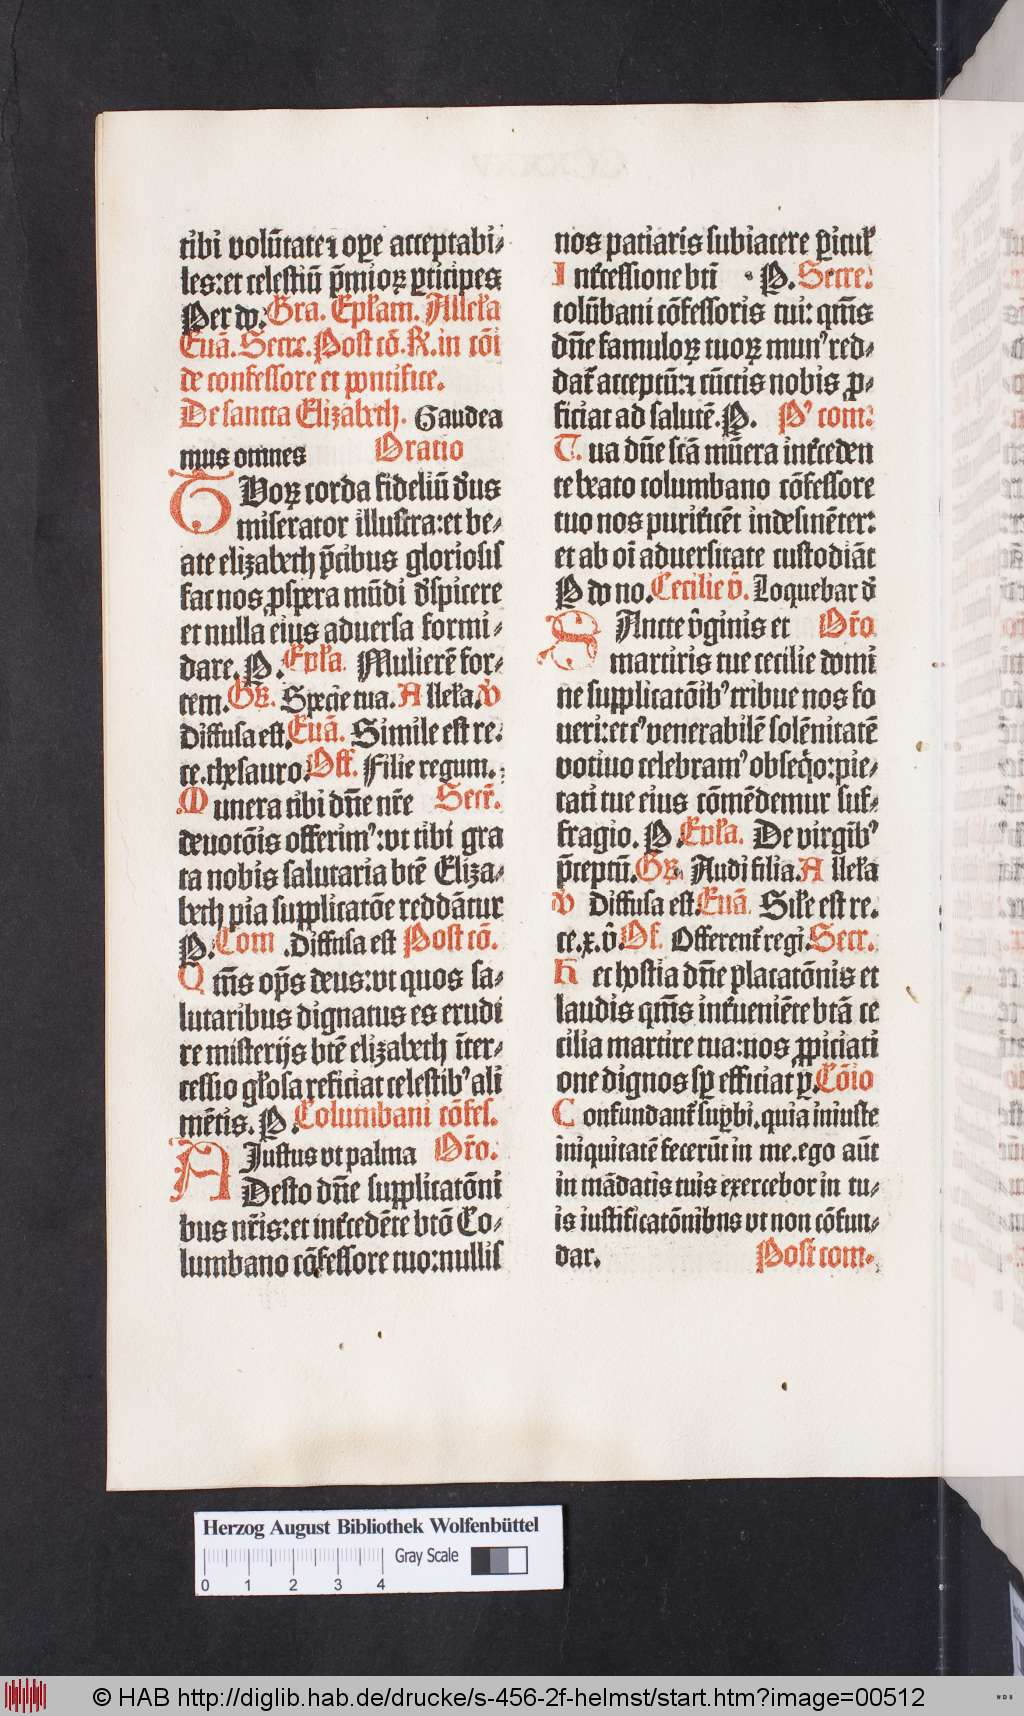 tibi volūtate ⁊ oꝑe acceptabi⸗
les: et celestiū p̄mioꝝ ꝑticipes
Per do. Gra. Epl̄am. Allel̓a
Euā. Secre. Post cō. R. in cōi
de confessore et pontifice.
De sancta Elizabeth. Gaudea
mus omnes Oratio
TUoꝝ corda fideliū de᷒us
miserator illustra: et be⸗
ate elizabeth p̄cibus gloriosis
fac nos ꝓspera mūdi despicere
et nulla eius aduersa formi⸗
dare. P. Epl̓a. Mulierē for⸗
tem. Gr̄. Specie tua. Allel̓a. v̓
Diffusa est. Euā. Simile est re.
ce. thesauro. Off. Filie regum.
Munera tibi dn̄e nr̄e Secr̄.
deuotōis offerim᷒: vt tibi gra
ta nobis salutaria btē Eliza⸗
beth pia supplicatōe reddātur
P. Com. Diffusa est Post cō.
Qm̄s op̄s deus: vt quos sa⸗
lutaribus dignatus es erudi
re misterijs btē elizabeth īter⸗
cessio gl̓osa reficiat celestib᷒ ali
mētis. P. Columbani cōfes.
Justus vt palma Or̄o.
ADesto dn̄e supplicatōni
bus nr̄is: et int̓cedēte btō Co⸗
lumbano cōfessore tuo: nullis
nos patiaris subiacere ꝑicul̓
Int̓cessione bti P. Secre.
colūbani cōfessoris tui: qm̄s
dn̄e famuloꝝ tuoꝝ mun᷒ red⸗
dat̓ acceptū: ⁊ cūctis nobis ꝓ⸗
ficiat ad salutē. P. P᷒ com.
Tua dn̄e sc̄a mūera int̓ceden
te beato columbano cōfessore
tuo nos purificēt indesinēter:
et ab oī aduersitate custodiāt
P do no. Cecilie v̄. Loquebar d̄
SAncte v̓ginis et Or̄o
martiris tue cecilie domi
ne supplicatōib᷒ tribue nos fo
ueri: et e᷒ venerabilē solēnitatē
votiuo celebram᷒ obseq̄o: pie⸗
tati tue eius cōmēdemur suf⸗
fragio. P. Epl̓a. De virgīb᷒
p̄ceptū. Gr̄. Audi filia. Allel̓a
v̓ Diffusa est. Euā. Sil̓e est re.
ce. x. v̄. Of. Offerent̓ regi. Secr.
Hec hostia dn̄e placatōnis et
laudis qm̄s int̓ueniēte btā ce
cilia martire tua: nos ꝓpiciati
one dignos sꝑ efficiat ꝑ. Cōio
Confundant̓ suꝑbi. quia iniuste
iniquitatē fecerūt in me. ego aūt
in mādatis tuis exercebor in tu⸗
is iustificatōnibus vt non cōfun⸗
dar. Post com.
Herzog August Bibliothek Wolfenbüttel
Gray Scale
0 1 2 3 4
© HAB http://diglib.hab.de/drucke/s-456-2f-helmst/start.htm?image=00512